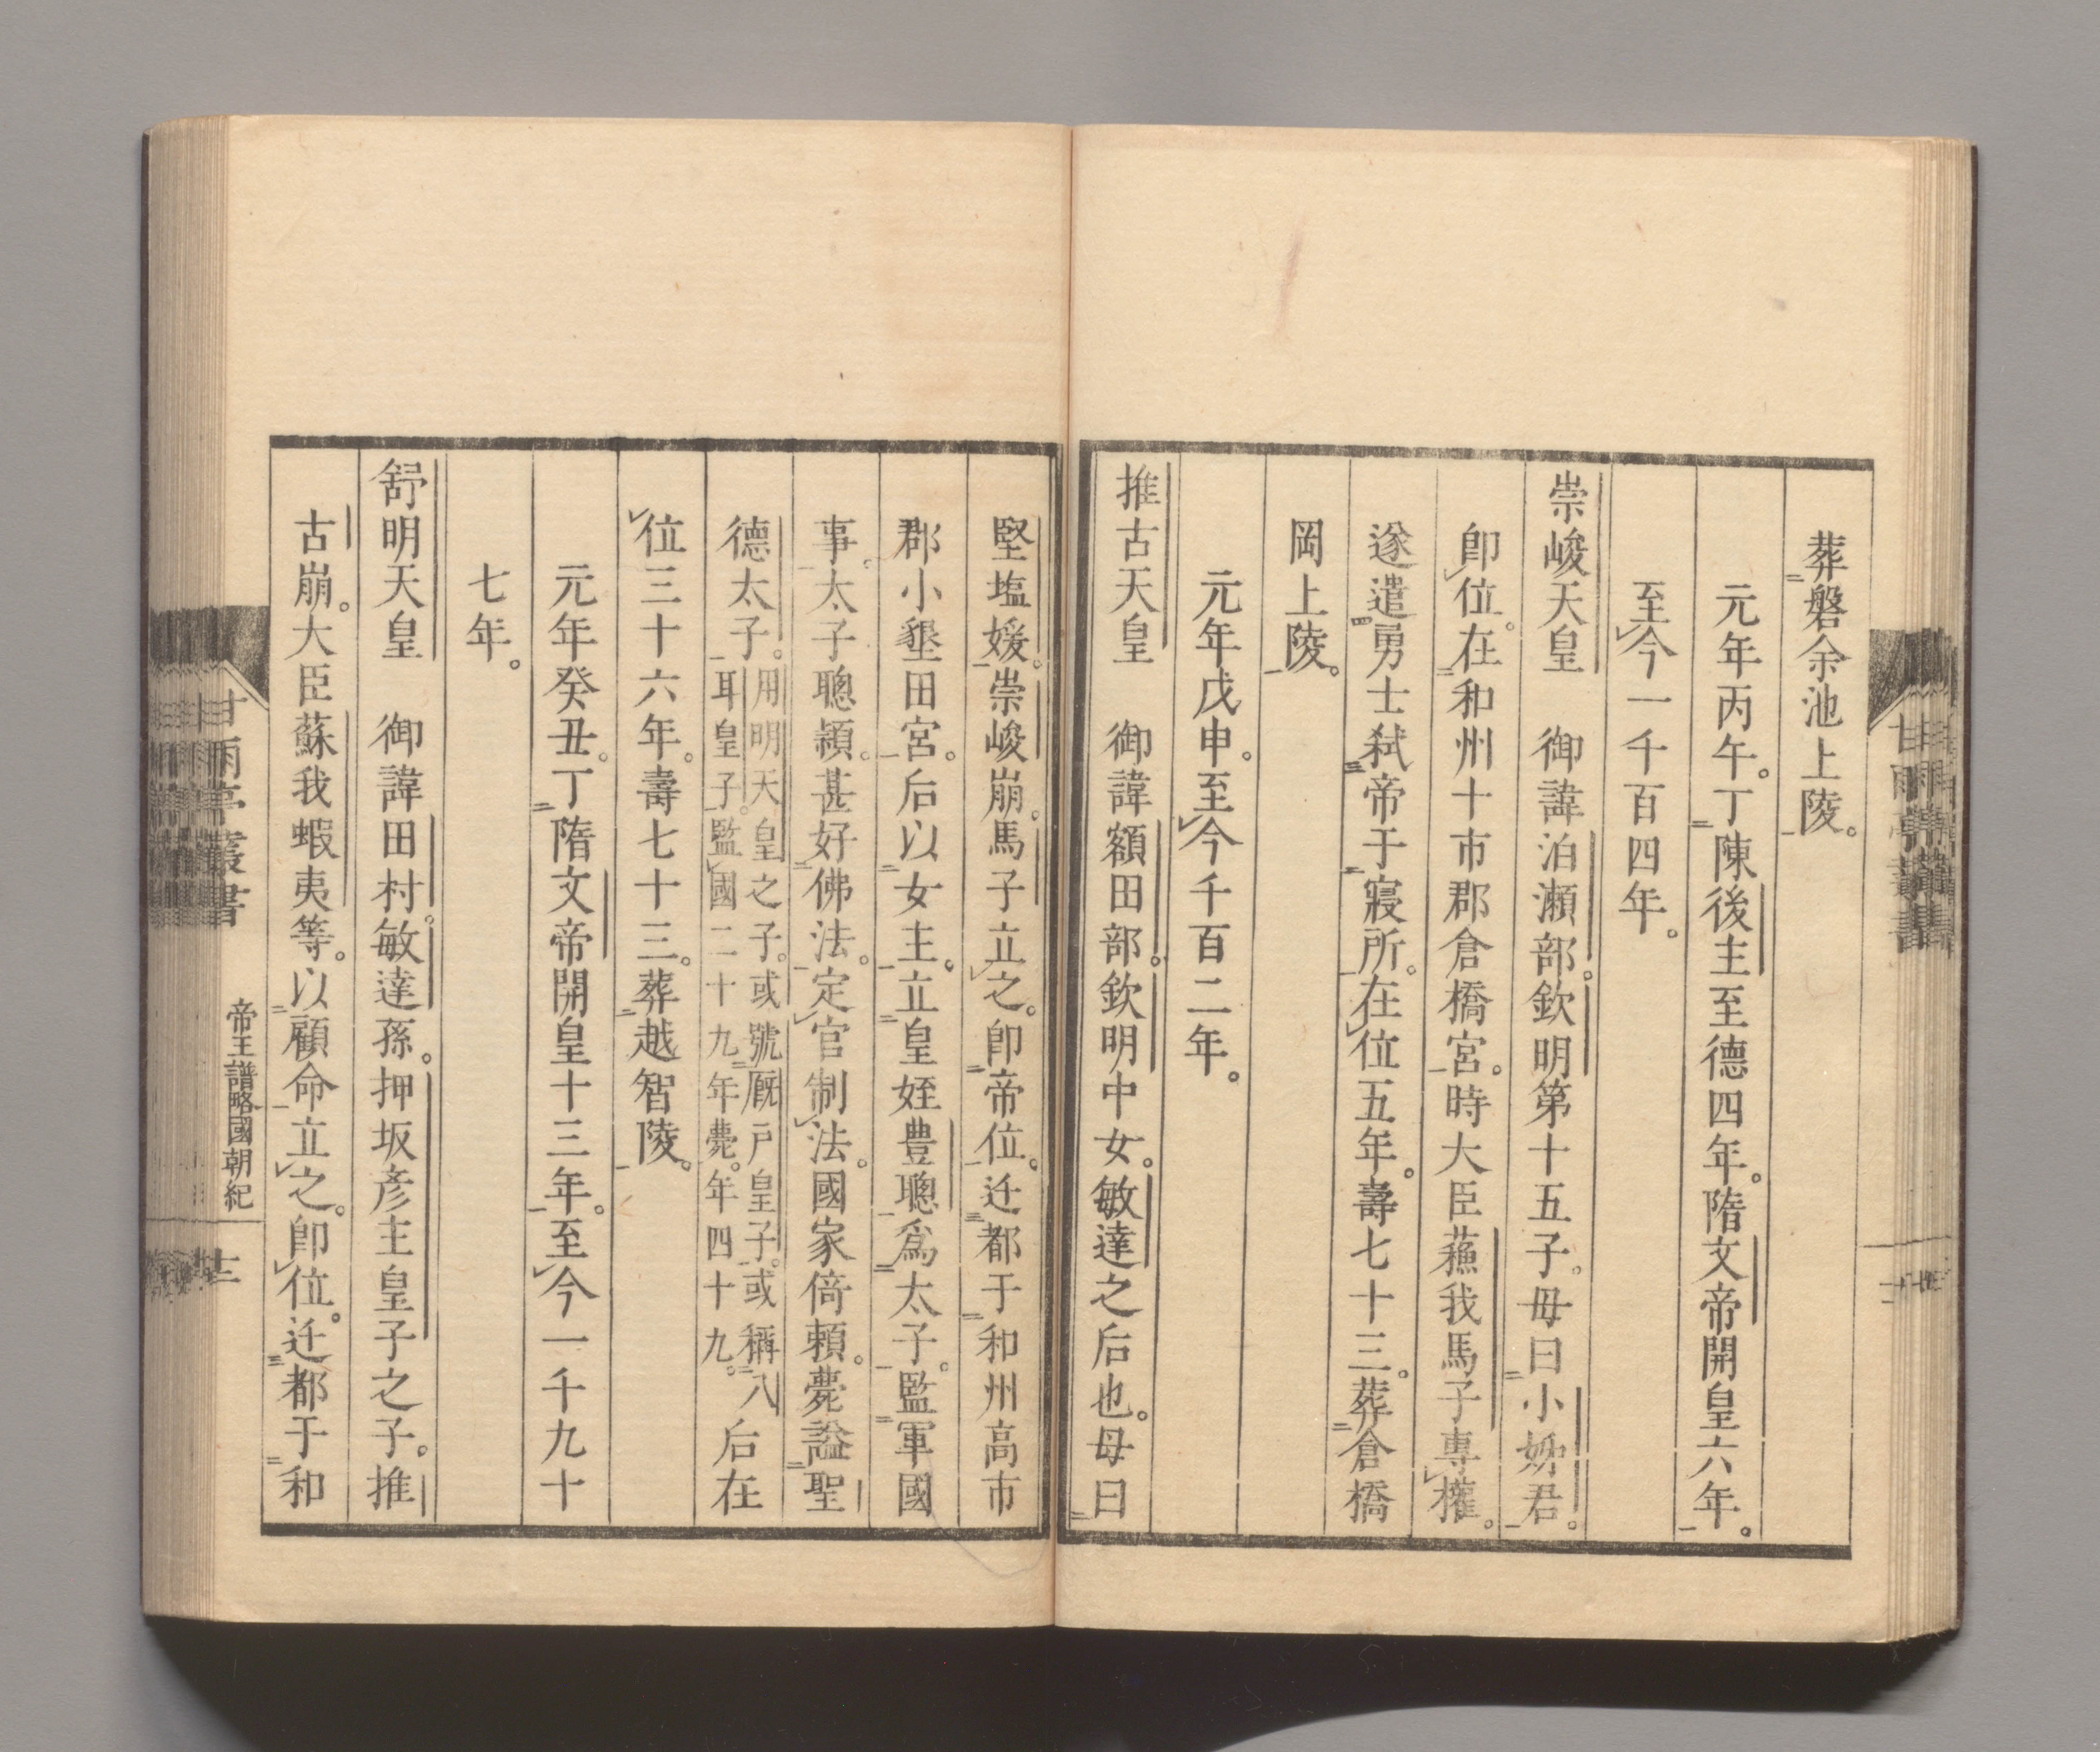 葬磐余池上陵。
元年丙午。丁陳後主至德四年。隋文帝開皇六年。
至今一千百四年。
崇峻天皇　御諱泊瀬部。欽明第十五子。母曰小姊君。
卽位。在和州十市郡倉橋宮。時大臣蘓我馬子專權。
遂遣勇士弑帝于寢所。在位五年。壽七十三。葬倉橋
岡上陵。
元年戊申。至今千百二年。
推古天皇　御諱額田部。欽明中女。敏達之后也。母曰
堅塩媛。崇峻崩。馬子立之。卽帝位。迁都于和州高市
郡小墾田宮。后以女主。立皇姪豊聰爲太子。監軍國
事。太子聰穎。甚好佛法。定官制法。國家倚賴。薨謚聖
德太子。用明天皇之子。或號厩戶皇子。或稱八耳皇子。監國二十九年薨。年四十九。后在
位三十六年。壽七十三。葬越智陵。
元年癸丑。丁隋文帝開皇十三年。至今一千九十
七年。
舒明天皇　御諱田村。敏達孫。押坂彥主皇子之子。推
古崩。大臣蘇我蝦夷等。以顧命立之。卽位。迁都于和
甘雨亭叢書
帝王譜略國朝紀
十三